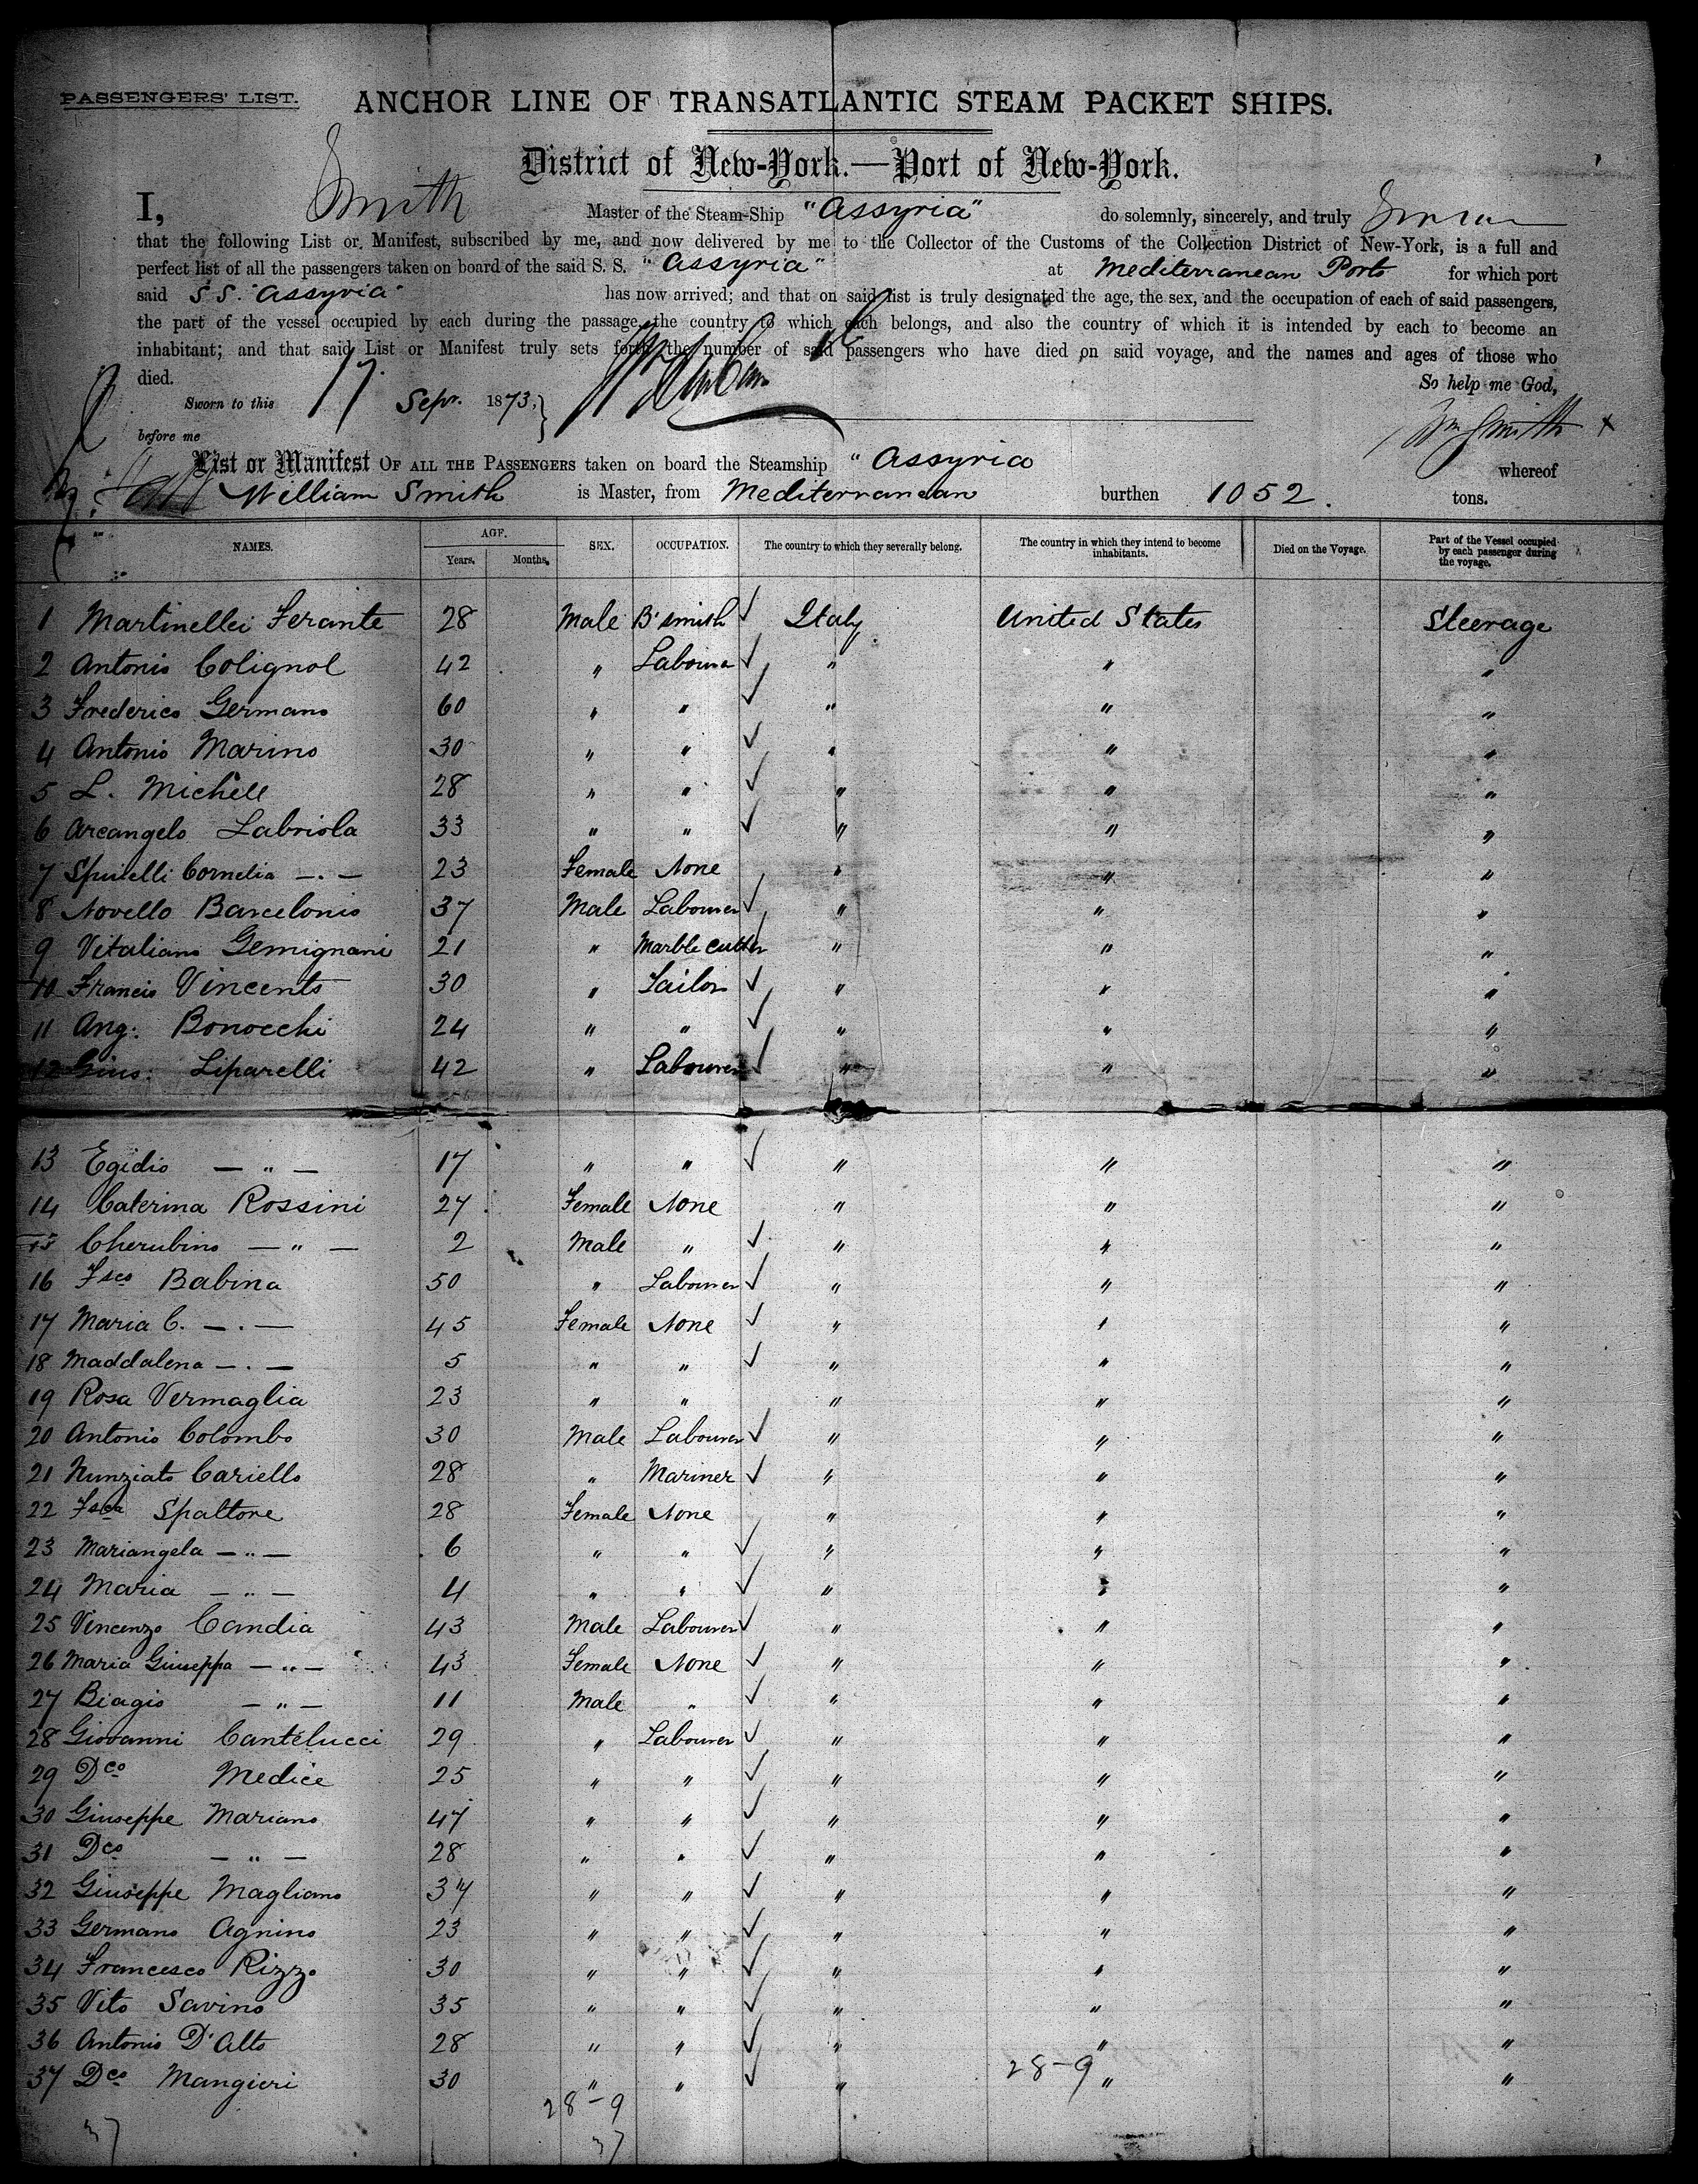 PASSENGERS' LIST.
ANCHOR LINE OF TRANSATLANTIC STEAM PACKET SHIPS.
District of New-York.—Port of New-York.
I, Smith Master of the Steam-Ship "Assyria" do solemnly, sincerely, and truly Swear
that the following List or Manifest, subscribed by me, and now delivered by me to the Collector of the Customs of the Collection District of New-York, is a full and
perfect list of all the passengers taken on board of the said S. S. "Assyria" at Mediterranean Ports for which port
said S.S. "Assyria" has now arrived; and that on said list is truly designated the age, the sex, and the occupation of each of said passengers,
the part of the vessel occupied by each during the passage, the country to which each belongs, and also the country of which it is intended by each to become an
inhabitant; and that said List or Manifest truly sets forth the number of said passengers who have died on said voyage, and the names and ages of those who
died. So help me God,
Sworn to this 17 Sepr. 1873,
before me Wm Smith x
List or Manifest OF ALL THE PASSENGERS taken on board the Steamship "Assyria whereof
William Smith is Master, from Mediterranean burthen 1052. tons.
NAMES. AGE. Years. Months. SEX. OCCUPATION. The country to which they severally belong. The country in which they intend to become inhabitants. Died on the Voyage. Part of the Vessel occupied by each passenger during the voyage.
1 Martinellei Ferante 28 Male B'smith ✓ Italy United States Steerage
2 Antonio Colignol 42 " Labourer ✓ " " "
3 Frederico Germano 60 " " ✓ " " "
4 Antonio Marino 30 " " ✓ " " "
5 L. Michele 28 " " ✓ " " "
6 Arcangelo Labriola 33 " " ✓ " " "
7 Cornelia — . — 23 Female None " " "
8 Novello Barcelonis 37 Male Labourer ✓ " " "
9 Vitaliano Gemignani 21 " Marble cutter " " "
10 Francis Vincents 30 " Sailor ✓ " " "
11 Ang: Bonocchi 24 " " ✓ " " "
12 Gius: Liparelli 42 " Labourer ✓ " " "
13 Egidio — " — 17 " " ✓ " " "
14 Caterina Rossini 27 Female None " " "
15 Cherubino — " — 2 Male " ✓ " " "
16 Fsco Babina 50 " Labourer ✓ " " "
17 Maria C. — . — 45 Female None ✓ " " "
18 Maddalena — . — 5 " " ✓ " " "
19 Rosa Vermaglia 23 " " " " "
20 Antonio Colombo 30 Male Labourer ✓ " " "
21 Nunziato Cariello 28 " Mariner ✓ " " "
22 Fsca Spaltore 28 Female None " " "
23 Mariangela — " — 6 " " ✓ " " "
24 Maria — " — 4 " " ✓ " " "
25 Vincenzo Candia 43 Male Labourer ✓ " " "
26 Maria Giuseppa — " — 43 Female None ✓ " " "
27 Biagio — " — 11 Male " ✓ " " "
28 Giovanni Cantelucci 29 " Labourer ✓ " " "
29 Dco Medice 25 " " ✓ " " "
30 Giuseppe Mariano 47 " " ✓ " " "
31 Dco — " — 28 " " ✓ " " "
32 Giuseppe Magliano 37 " " ✓ " " "
33 Germano Agnino 23 " " ✓ " " "
34 Francesco Rizzo 30 " " ✓ " " "
35 Vito Savino 35 " " ✓ " " "
36 Antonio D'Alto 28 " " ✓ " " "
37 Dco Mangieri 30 " " ✓ " 28-9 " "
28-9
37 37